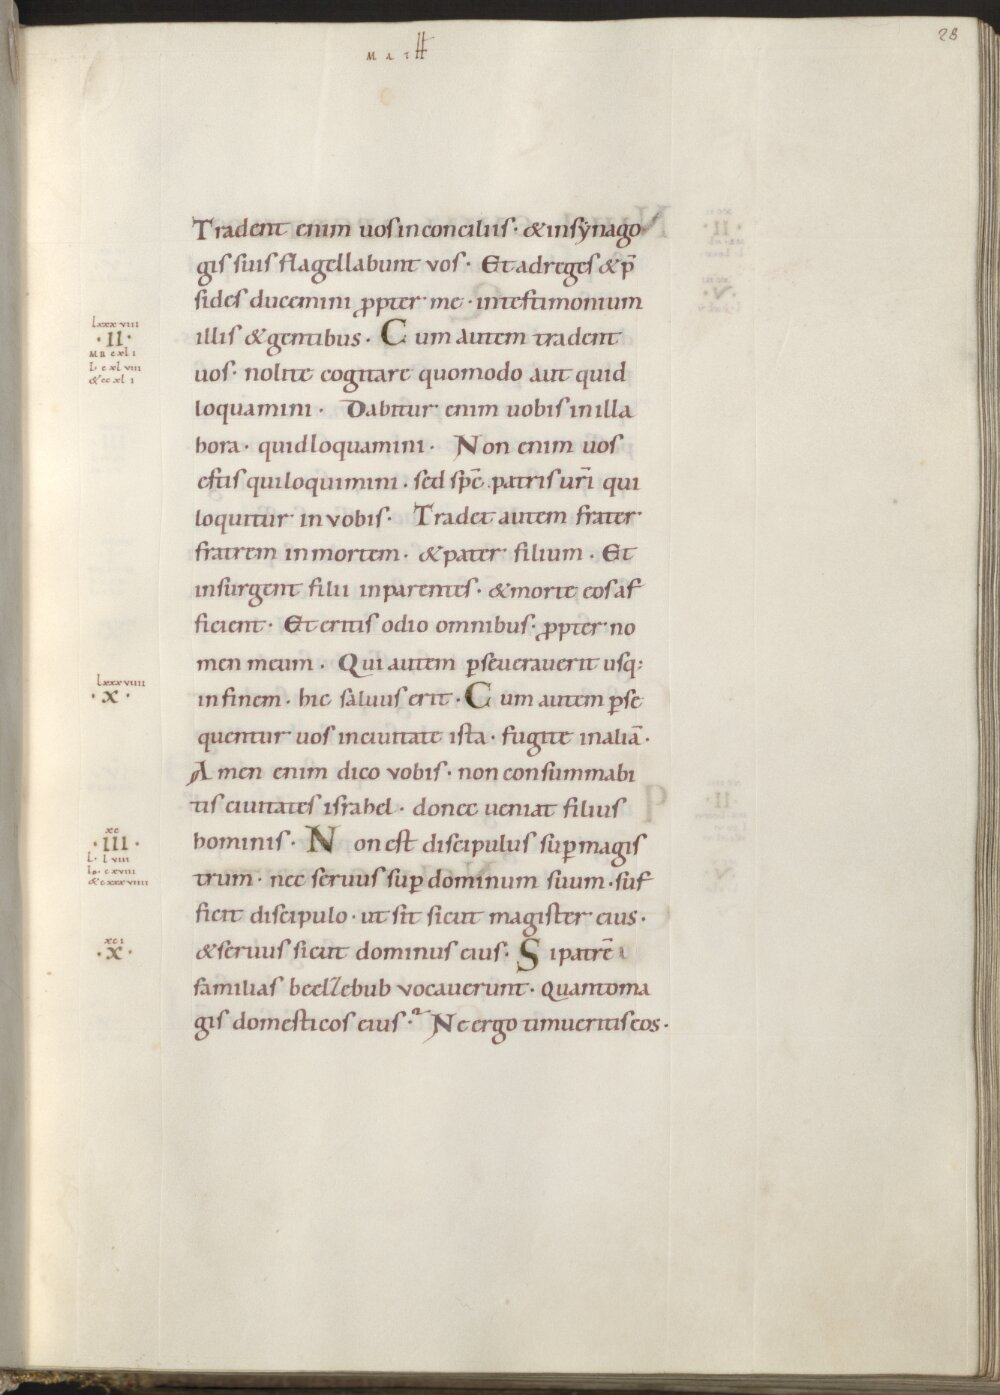 MATH
28
Tradent enim uos in conciliis· & in synago
gis suis flagellabunt vos· Et ad reges & p̄
sides ducemini ꝓpter me· in testimonium
lxxxviii
·II·
MR cxli
L· cxlviii
& ccxli
illis & gentibus· Cum autem tradent
uos· nolite cogitare quomodo aut quid
loquamini· Dabitur enim uobis in illa
hora· quid loquamini· Non enim uos
estis qui loquimini· sed sp̄c patris ur̄i qui
loquitur in vobis· Tradet autem frater
fratrem in mortem· & pater filium· Et
insurgent filii in parentes· & morte eos af
ficient· Et eritis odio omnibus· ꝓpter no
men meum· Qui autem ꝑseuerauerit usq;
lxxxviiii
·X·
in finem· hic saluus erit· Cum autem ꝑse
quentur uos in ciuitate ista· fugite in aliā·
Amen enim dico vobis· non consummabi
tis ciuitates israhel· donec ueniat filius
xc
·III·
L· lviii
Io· cxviii
& cxxxviiii
hominis· Non est discipulus suꝑ magis
trum· nec seruus suꝑ dominum suum· suf
ficit discipulo· ut sit sicut magister eius·
xci
·X·
& seruus sicut dominus eius· Si patrē
familias beelzebub vocauerunt· Quanto ma
gis domesticos eius· Ne ergo timueritis eos·